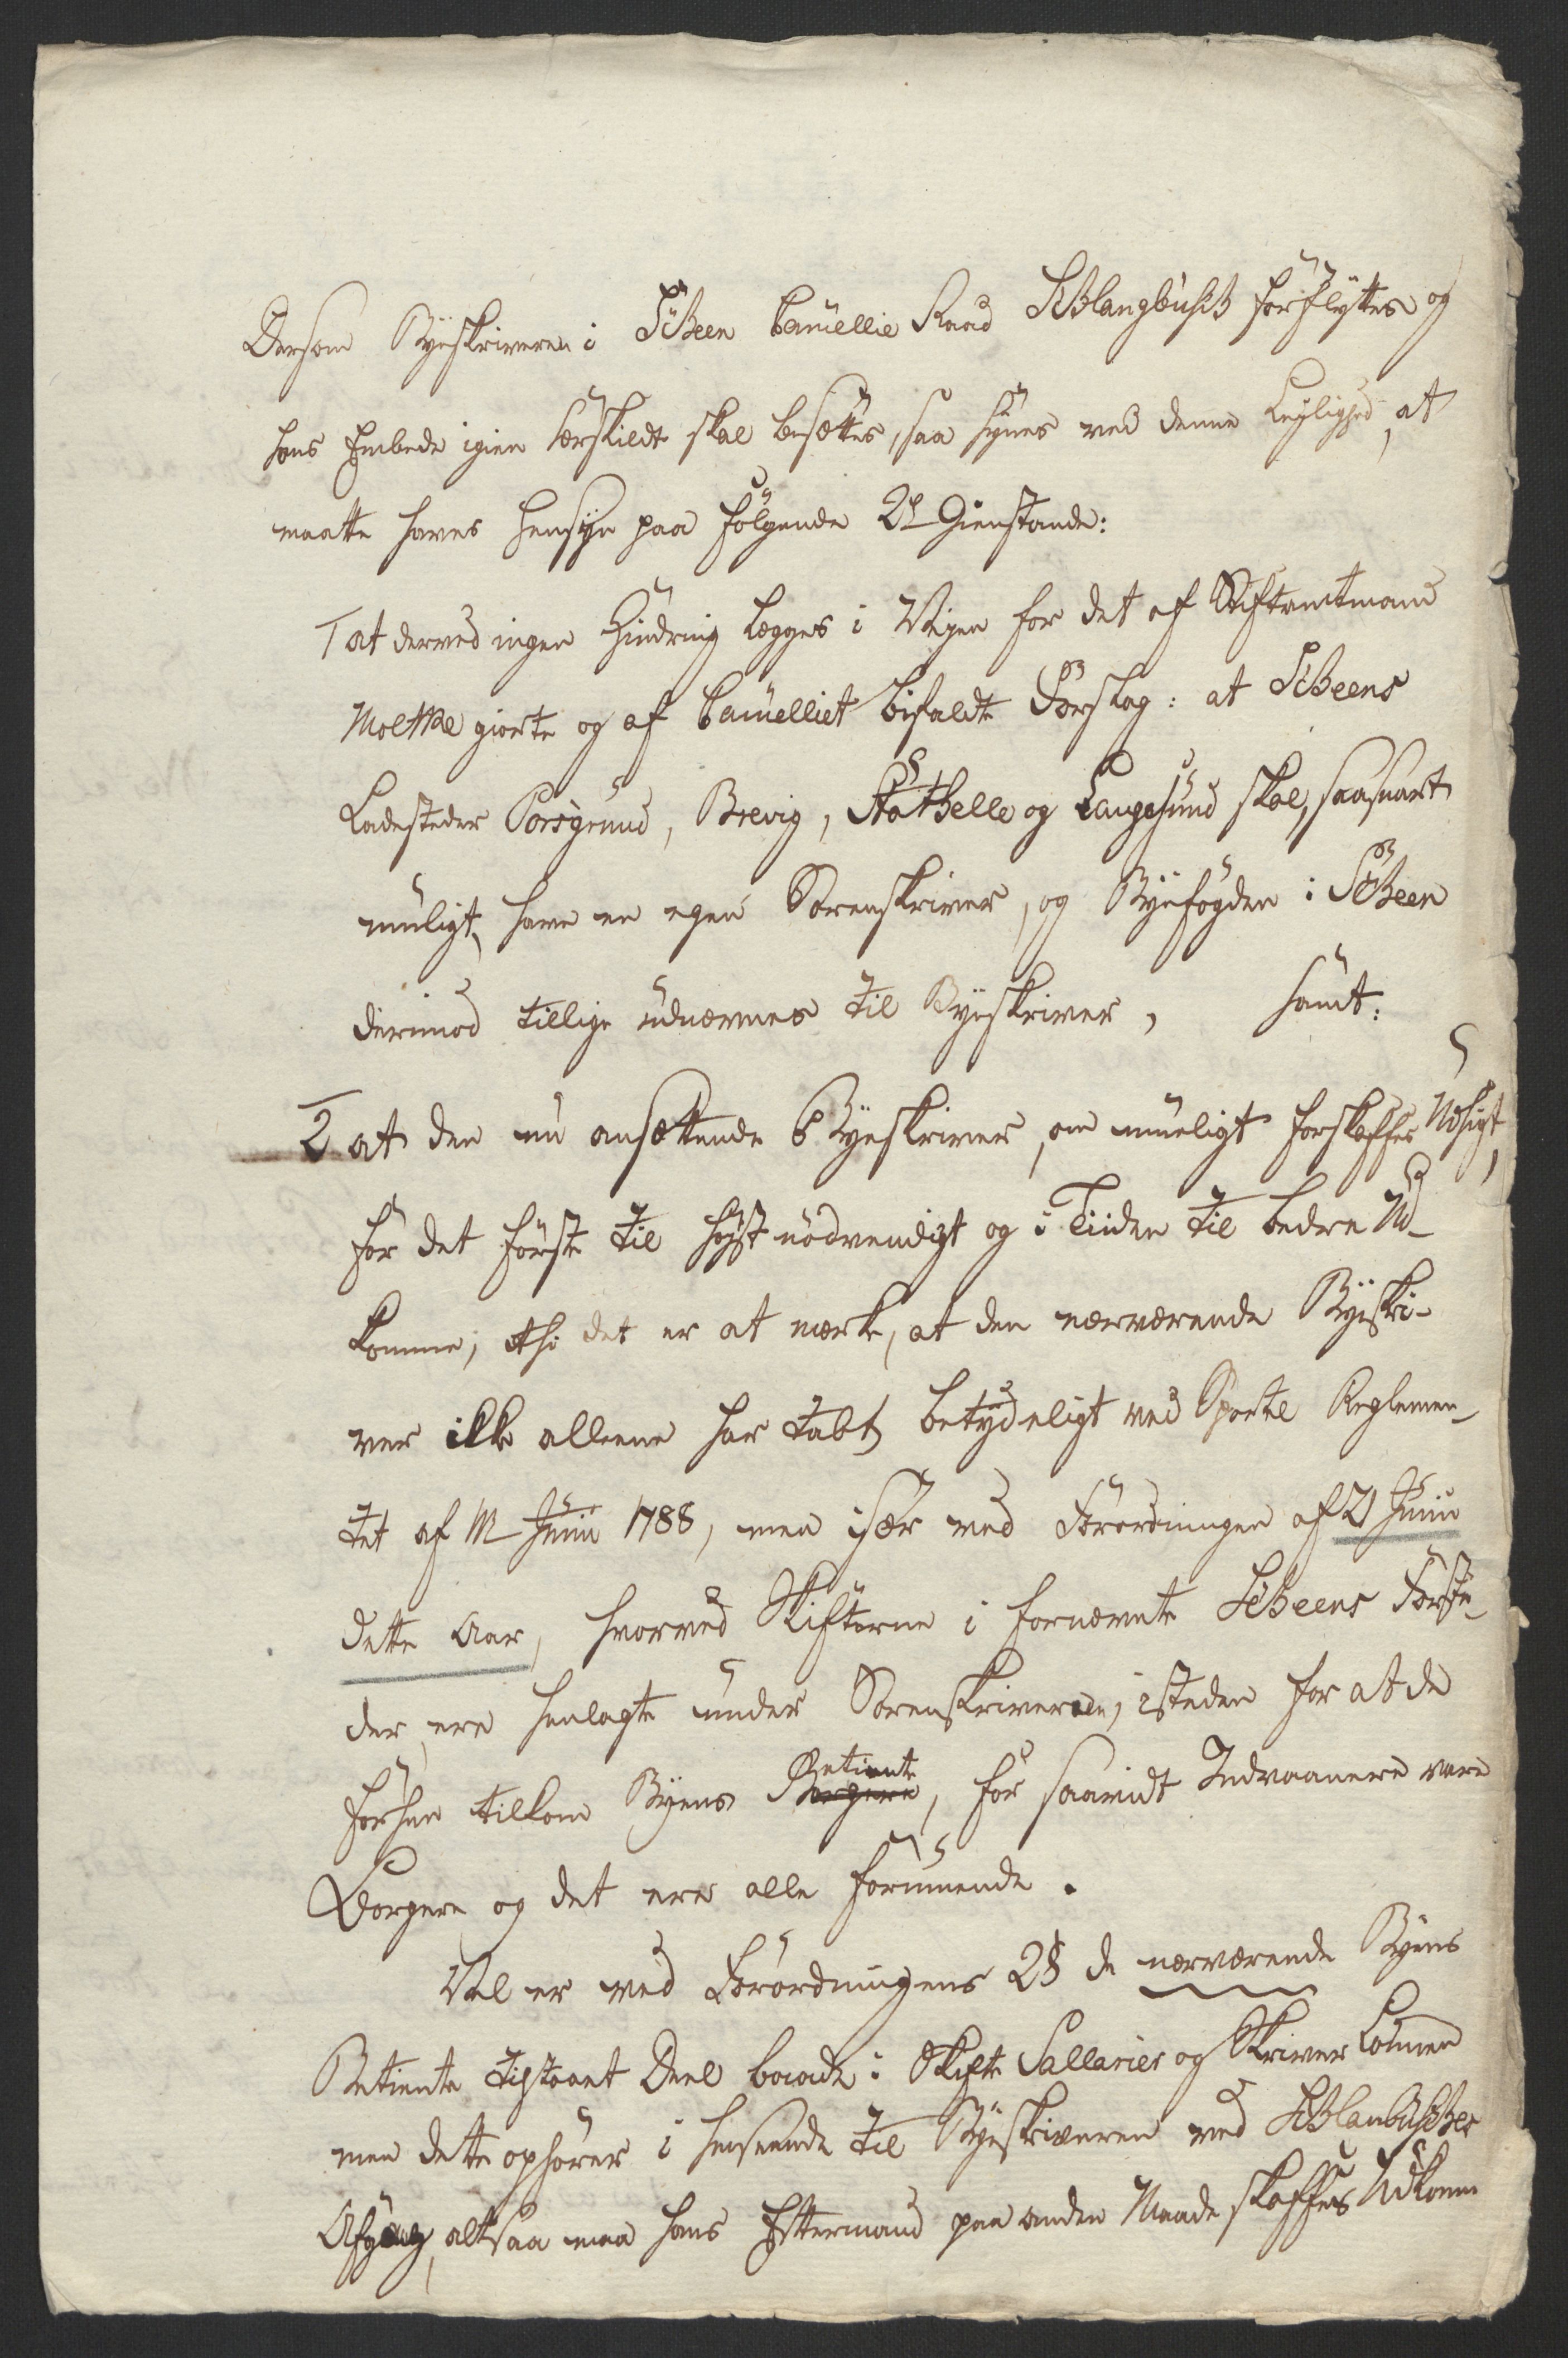 Dersom Byeskriveren i Scheen Cancellie Raad Schlangbusch forflyttes og
hans Embede igien særskildt skal besættes, saa synes ved denne Leylighed, at
maatte haves Hensyn paa følgende 2de Gienstande:
1 at derved ingen Hindring lægges i Vejen for det af Stiftamtmand
Moltke giorte og af Cancelliet bifaldte Forslag: at Scheens
Ladesteder Porsgrund, Brevig, Stathelle og Langesund skal, saasnart
muligt, have en egen Sorenskriver, og Byefogden i Scheen
derimod tillige udnævnes til Byeskriver, samt:
2 at den nu ansættende Byeskriver, om mueligt forskaffes Udsigt,
for det første til høyst nødvendigt og i Tiiden til bedre Ud-
komme; thi det er at mærke, at den nærværende Byeskri-
ver ikke alleene har tabt betydeligt ved Sportel Reglemen-
tet af 11 Junii 1788, men især ved Forordningen af 21 Junii
dette Aar, hvorved Skifterne i fornævnte Scheens Forstæ-
der ere henlagte under Sorenskriveren, isteden for at de
forhen tilkom Byens Borgere Betiente, for saavidt Indvaanere vare
Borgere og det ere alle formuende.
Vel er ved Forordningens 2§ de nærværende Byens
Betiente tilstaaet Deel baade i Skifte Sallarier og Skriver Lønnen
men dette ophører i Henseende til Byeskriveren ved Schlanbusches
Afgang, altsaa maa hans Eftermand paa anden Maade skaffes Udkomme